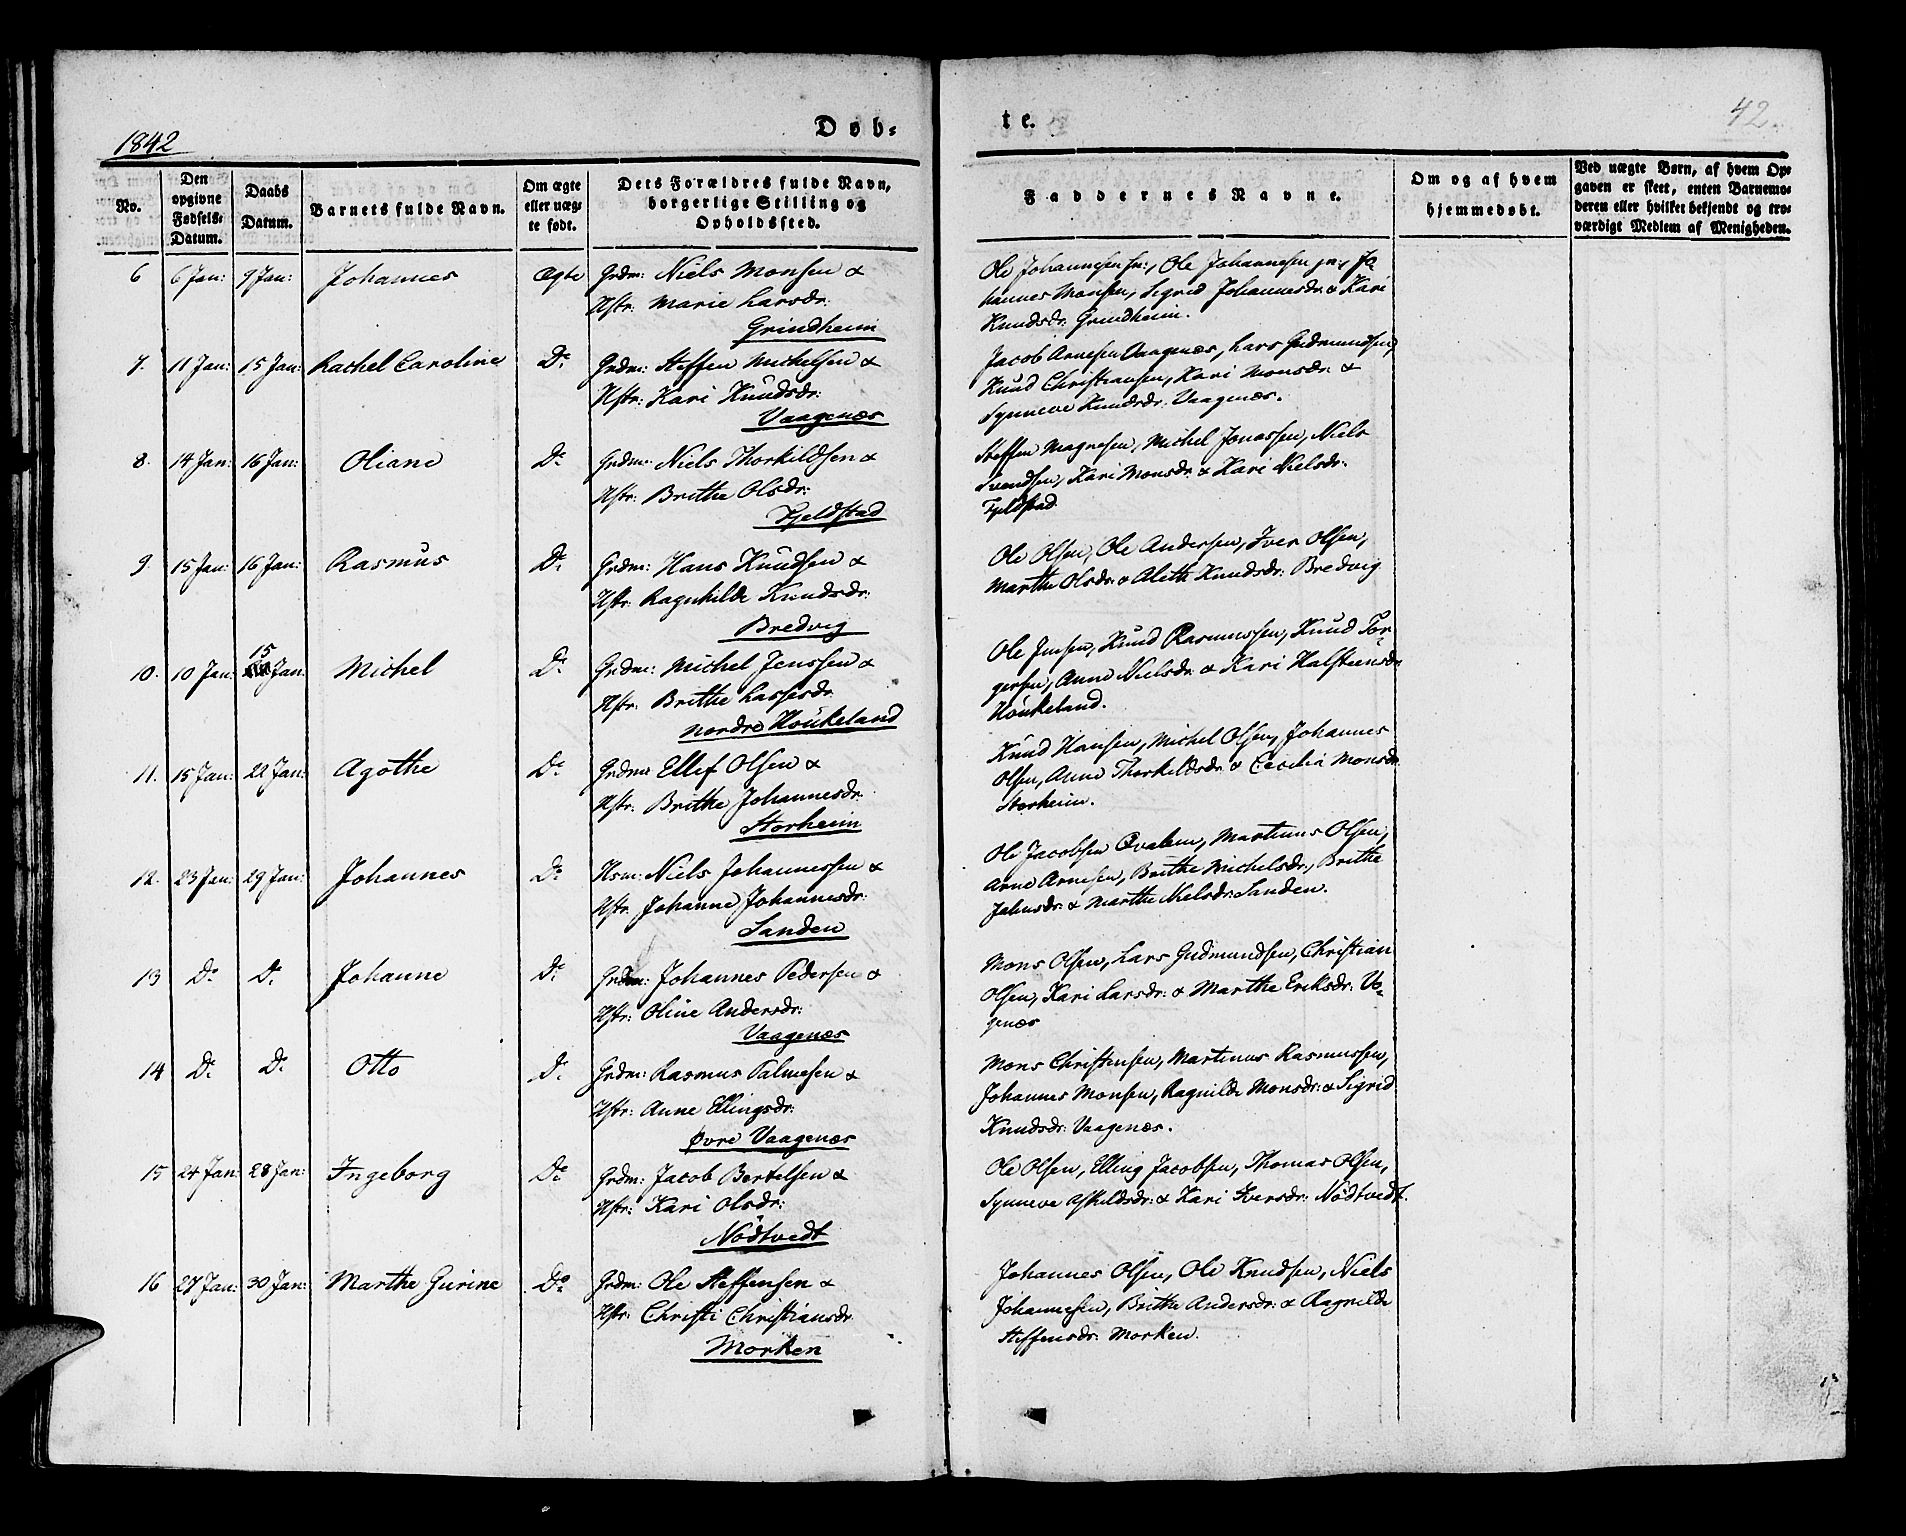 1842
Døb-
te.
42.
No.
Den opgivne Fødsels-Datum.
Daabs Datum.
Barnets fulde Navn.
Om ægte eller uægte født.
Dets Forældres fulde Navn, borgerlige Stilling og Opholdssted.
Faddernes Navne.
Om og af hvem hjemmedøbt.
Ved uægte Børn, af hvem Opgaven er skeet, enten Barnemoderen eller hvilket bekjendt og troværdigt Medlem af Menigheden.
6 6 Jan: 9 Jan: Johannes Ægte Grdm: Niels Monsen &
Hstr: Marie Larsdr:
Grindheim
Ole Johannesen sn:, Ole Johannesen jn:, Jo-
hannes Monsen, Sigrid Johannesdr: & Kari
Knudsdr: Grindheim.
7. 11 Jan: 15 Jan: Rachel Caroline Do. Grdm: Steffen Michelsen &
Hstr: Kari Knudsdr:
Vaagenæs
Jacob Arnesen Vaagenæs, Lars Gudmundsen,
Knud Christiansen, Kari Monsdr: &
Synneve Knudsdr: Vaagenæs.
8. 14 Jan: 16 Jan: Oliane Do. Grdm: Niels Thorkildsen &
Hstr: Brithe Olsdr:
Fjeldstad
Steffen Magnesen, Michel Jonassen, Niels
Svendsen, Kari Monsdr: & Kari Nielsdr:
Fjeldstad.
9. 15 Jan: 16 Jan: Rasmus Do. Grdm: Hans Knudsen &
Hstr: Ragnhilde Knudsdr:
Bredvig
Ole Olsen, Ole Andersen, Iver Olsen,
Marthe Olsdr: & Alette Knudsdr: Bredvig
10. 10 Jan: 15 Jan: Michel Do. Grdm: Michel Jenssen &
Hstr: Brithe Lassesdr:
nordre Houkeland
Ole Jensen, Knud Rasmussen, Knud Tor-
gersen, Anne Nielsdr: & Kari Halsteensdr:
Houkeland.
11. 15 Jan: 22 Jan: Agothe Do. Grdm: Ellef Olsen &
Hstr: Brithe Johannesdr:
Storheim
Knud Hansen, Michel Olsen, Johannes
Olsen, Anne Thorkildsdr: & Cecilia Monsdr:
Storheim.
12. 23 Jan: 29 Jan: Johannes Do. Hsm: Niels Johannessen &
Hstr: Johanne Johannesdr:
Sanden
Ole Jacobsen Qvalem, Martinus Olsen,
Arne Arnesen, Brithe Michelsdr:, Brithe
Johnsdr: & Marthe Nielsdr: Sanden.
13 Do. Do. Johanne Do. Grdm: Johannes Pedersen &
Hstr: Oline Andersdr:
Vaagenæs
Mons Olsen, Lars Gudmundsen, Christian
Olsen, Kari Larsdr: & Marthe Eriksdr: Va-
genæs
14 Do. Do. Otto Do. Grdm: Rasmus Palmesen &
Hstr: Anne Ellingsdr:
Øvre Vaagenæs
Mons Christensen, Martinus Rasmussen,
Johannes Monsen, Ragnilde Monsdr: & Sigrid
Knudsdr: Vaagenæs.
15 24 Jan: 28 Jan: Ingeborg Do. Grdm: Jacob Bertelsen &
Hstr: Kari Olsdr:
Nödtvedt
Ole Olsen, Elling Jacobsen, Thomas Olsen,
Synneve Askildsdr: & Kari Iversdr: Nödtvedt.
16 27 Jan: 30 Jan: Marthe Gurine Do. Grdm: Ole Steffensen &
Hstr: Christi Christiansdr:
Morken
Johannes Olsen, Ole Knudsen, Niels
Johannesen, Brithe Andersdr: & Ragnilde
Steffensdr: Morken.